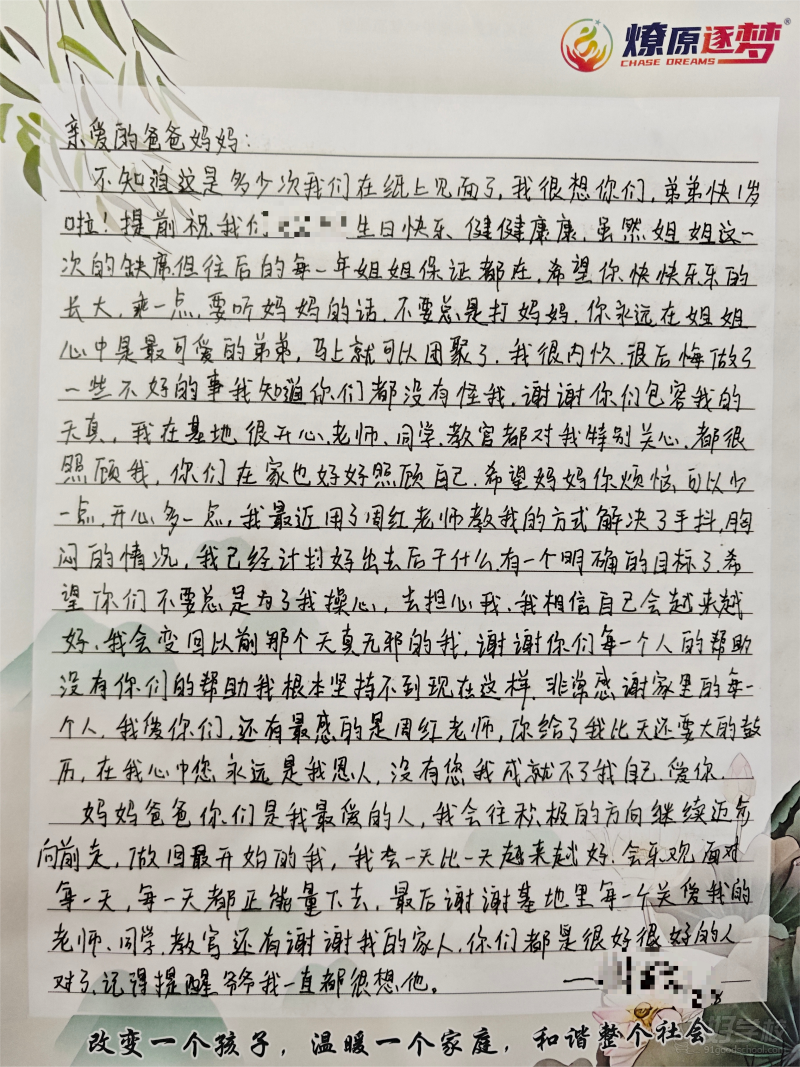 燎原逐梦
CHASE DREAMS
亲爱的爸爸妈妈：
不知道这是多少次我们在纸上见面了，我很想你们，弟弟快1岁
啦！提前祝我们生日快乐、健健康康，虽然姐姐这一
次的缺席但往后的每一年姐姐保证都在，希望你快快乐乐的
长大，乖一点，要听妈妈的话，不要总是打妈妈，你永远在姐姐
心中是最可爱的弟弟，马上就可以团聚了，我很内疚，很后悔做了
一些不好的事我知道你们都没有怪我，谢谢你们包容我的
天真，我在基地很开心，老师、同学、教官都对我特别关心，都很
照顾我，你们在家也好好照顾自己，希望妈妈你烦恼可以少
一点，开心多一点，我最近用了周红老师教我的方式解决了手抖，胸
闷的情况，我已经计划好出去后干什么，有一个明确的目标了，希
望你们不要总是为了我操心，去担心我，我相信自己会越来越
好、我会变回以前那个天真无邪的我，谢谢你们每一个人的帮助
没有你们的帮助我根本坚持不到现在这样，非常感谢家里的每一
个人，我爱你们，还有最感的是周红老师，你给了我比天还要大的鼓
历，在我心中您永远是我恩人，没有您我成就不了我自己，爱你．
妈妈爸爸你们是我最爱的人，我会往积极的方向继续迈步
向前走，做回最开始的我，我会一天比一天越来越好，会乐观面对
每一天，每一天都正能量下去，最后谢谢基地里每一个关爱我的
老师、同学、教官还有谢谢我的家人，你们都是很好很好的人
对了、记得提醒爷爷我一直都很想他。 —
改变一个孩子，温暖一个家庭，和谐整个社会
91goodschool.com